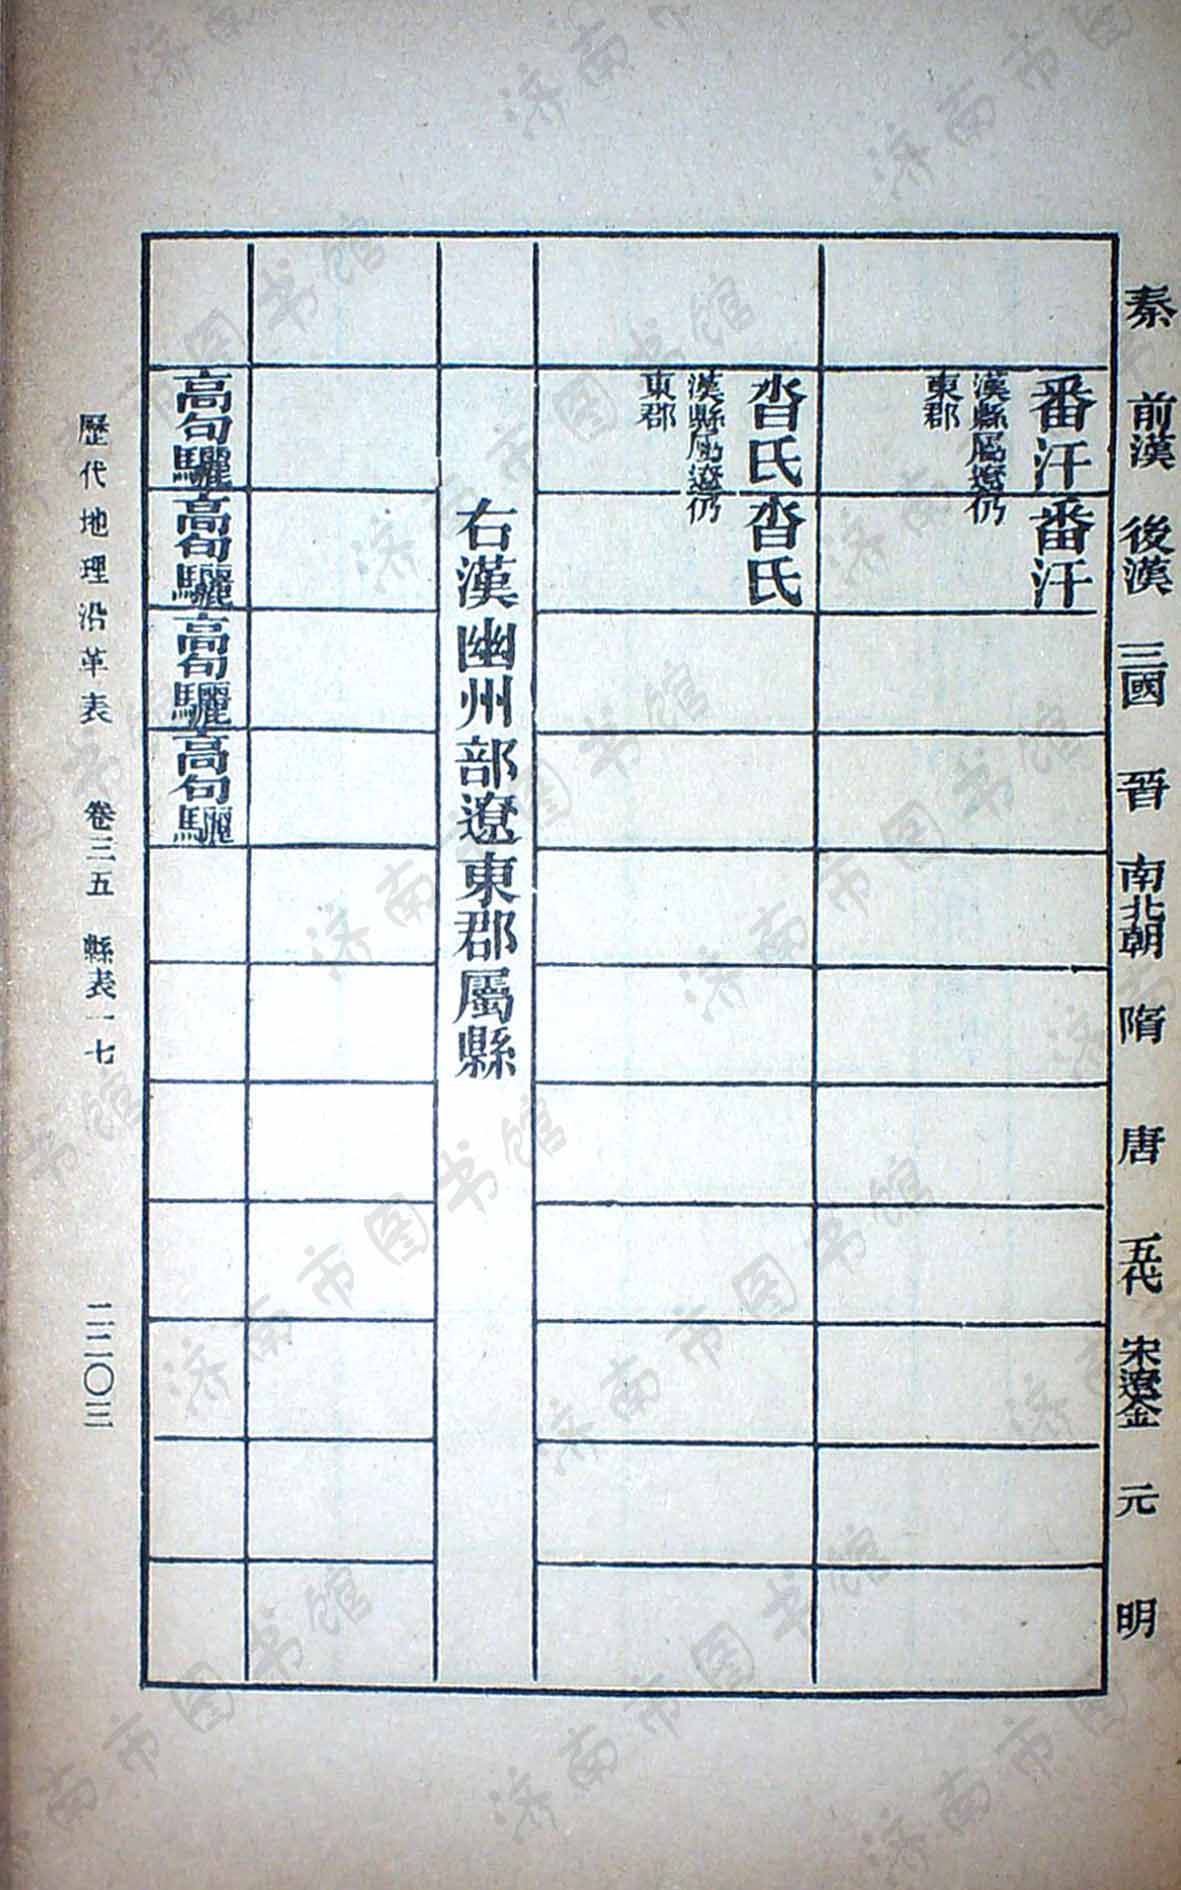 秦 前漢 後漢 三國 晉 南北朝 隋 唐 五代 宋遼金 元 明
番汗 番汗
漢縣屬遼仍
東郡
沓氏 沓氏
漢縣屬遼仍
東郡
右漢幽州部遼東郡屬縣
高句驪 高句驪 高句驪 高句驪
歷代地理沿革表 卷三五 縣表一七 二二〇三
济南市图书馆